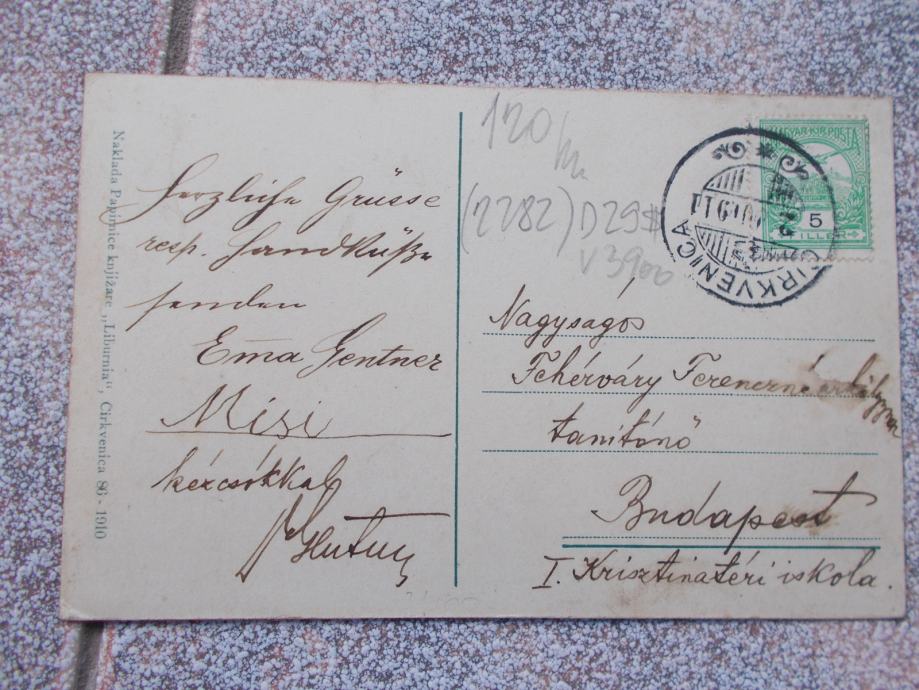 Naklada Papirnice knjižare „Liburnia“, Cirkvenica 86 - 1910
Herzliche Grüsse
resp. Handküße
senden
Ema Gentner
Misi
kézcsókkal
120
(2282) D29$
V 3900
MAGYAR·KIR·POSTA
5
FILLER
CIRKVENICA
Nagyságos
Fehérváry Ferencné
tanítónő
Budapest
I. Krisztinatéri iskola.